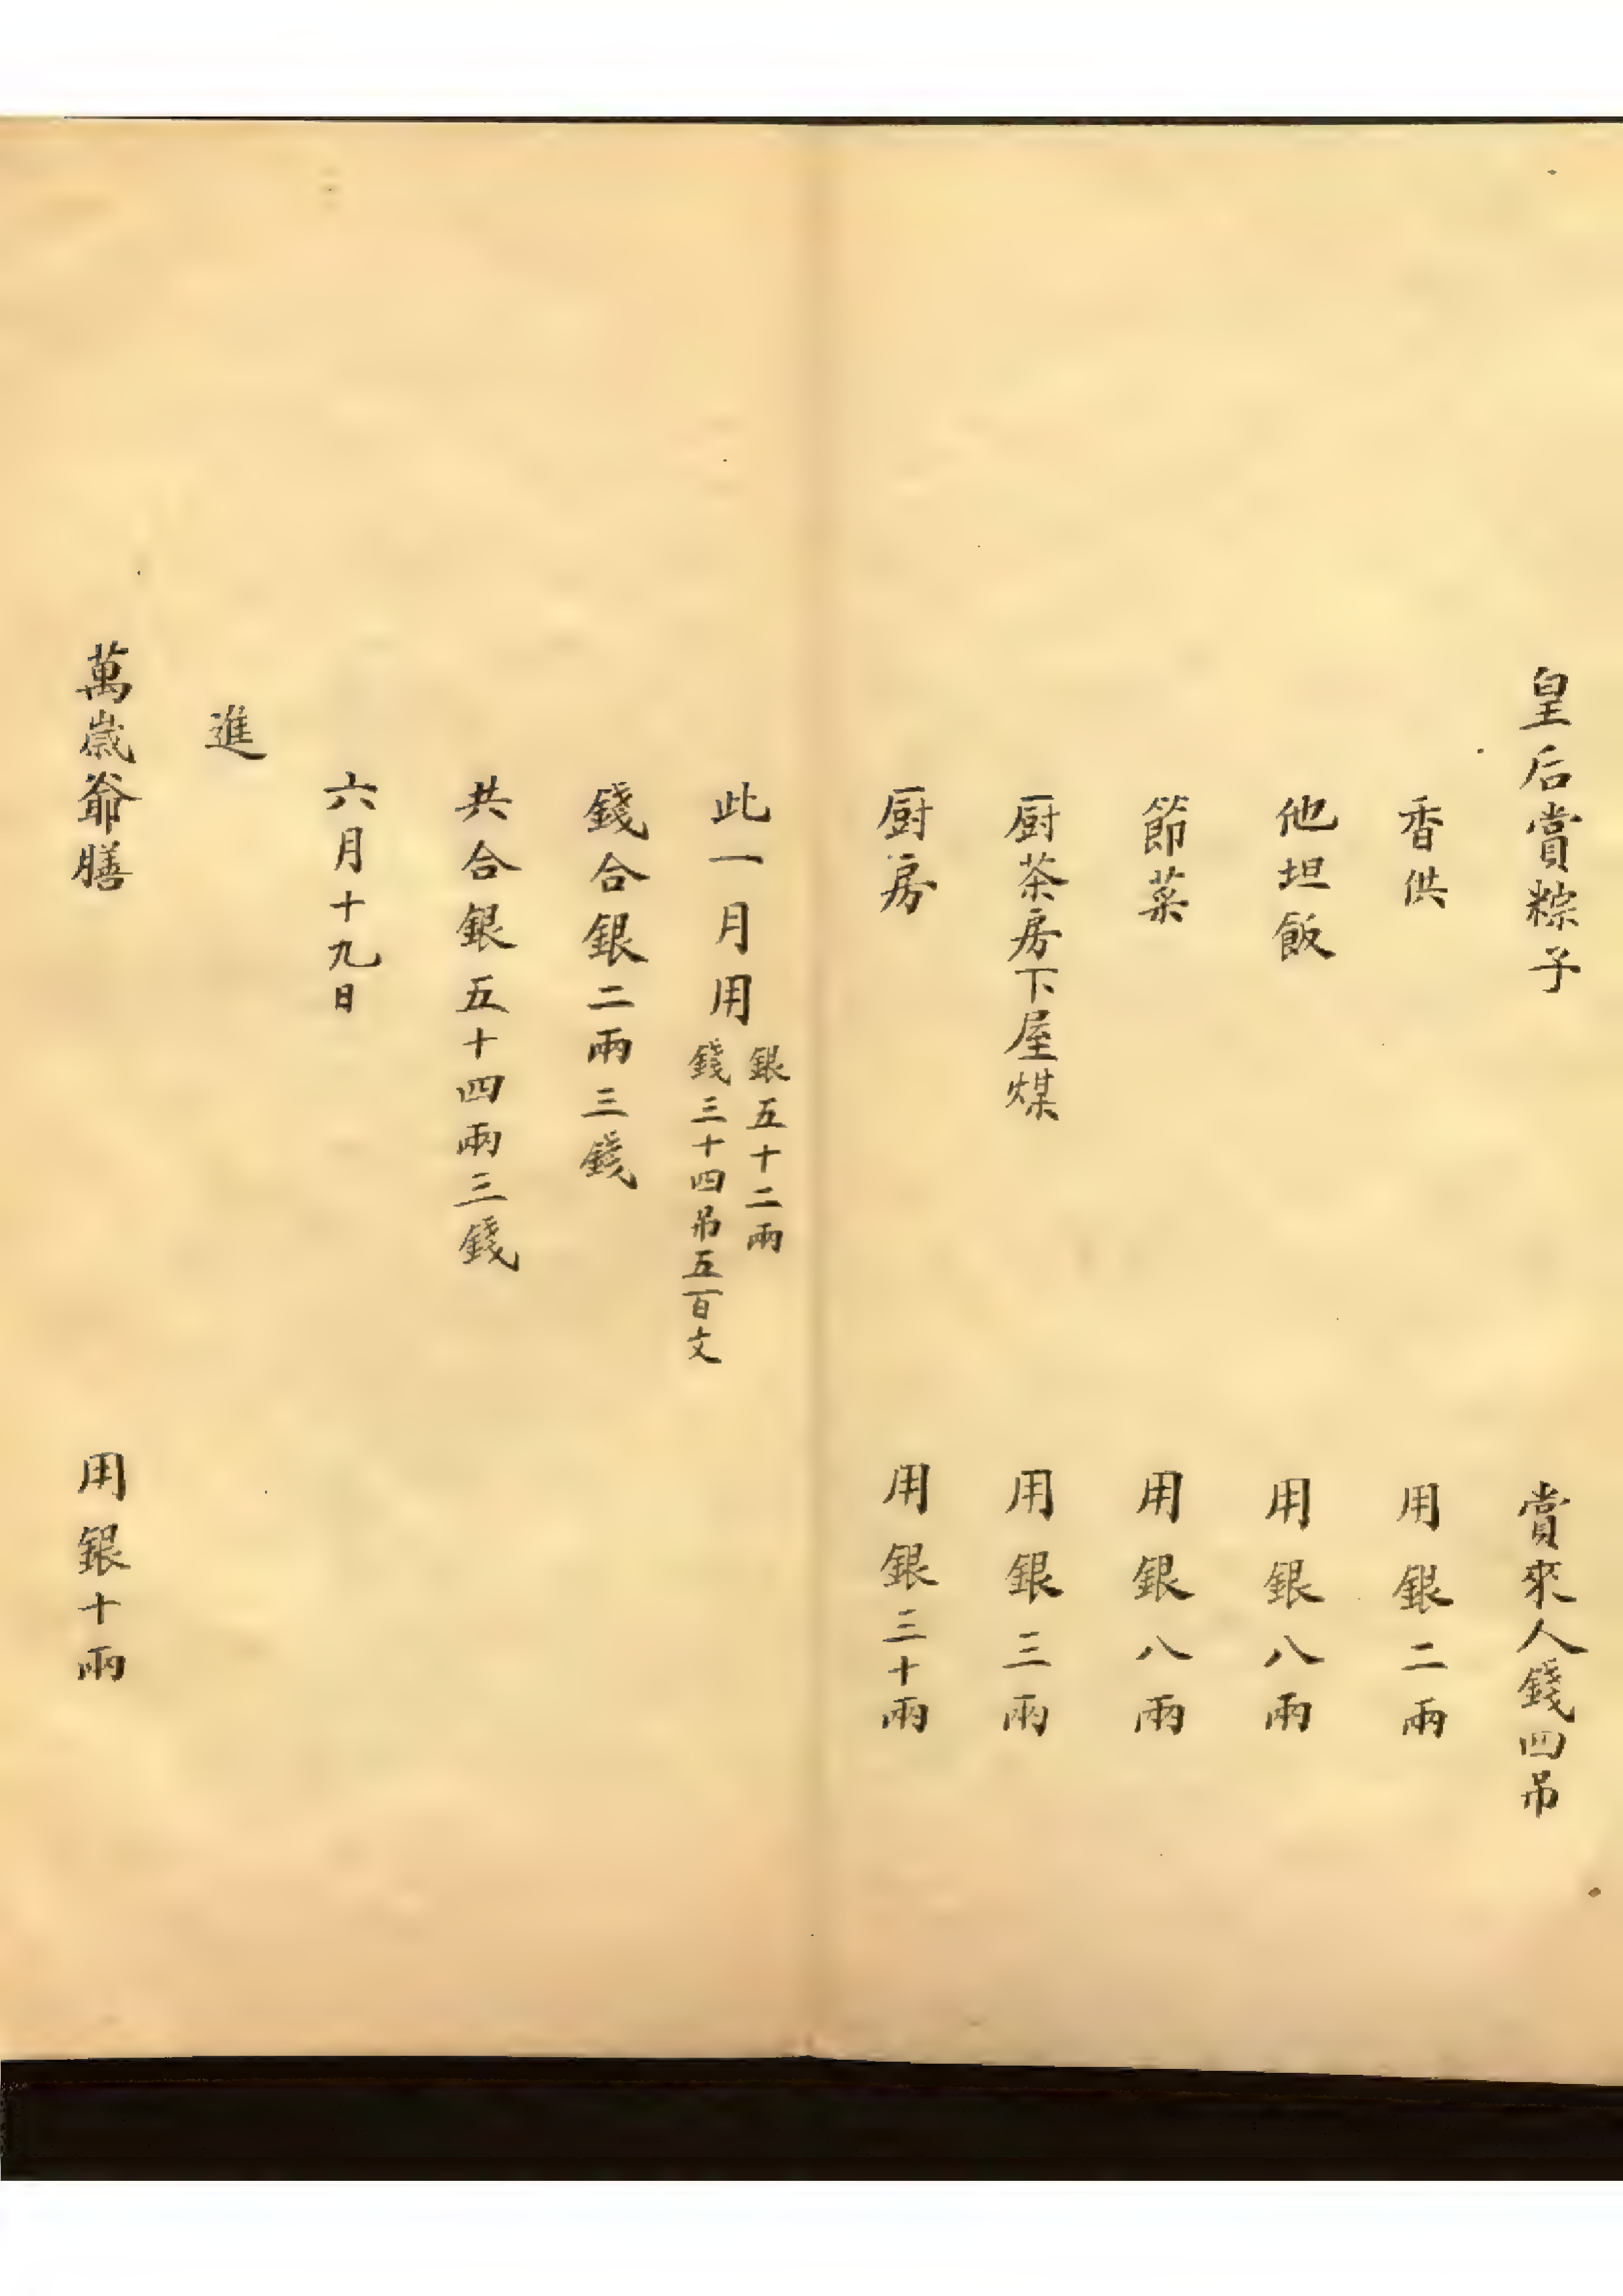 皇后賞粽子 賞來人錢四吊
香供 用銀二兩
他坦飯 用銀八兩
節菜 用銀八兩
厨茶房下屋煤 用銀三兩
厨房 用銀三十兩
此一月用 銀五十二兩
錢三十四吊五百文
錢合銀二兩三錢
共合銀五十四兩三錢
六月十九日
進
萬歲爺膳 用銀十兩